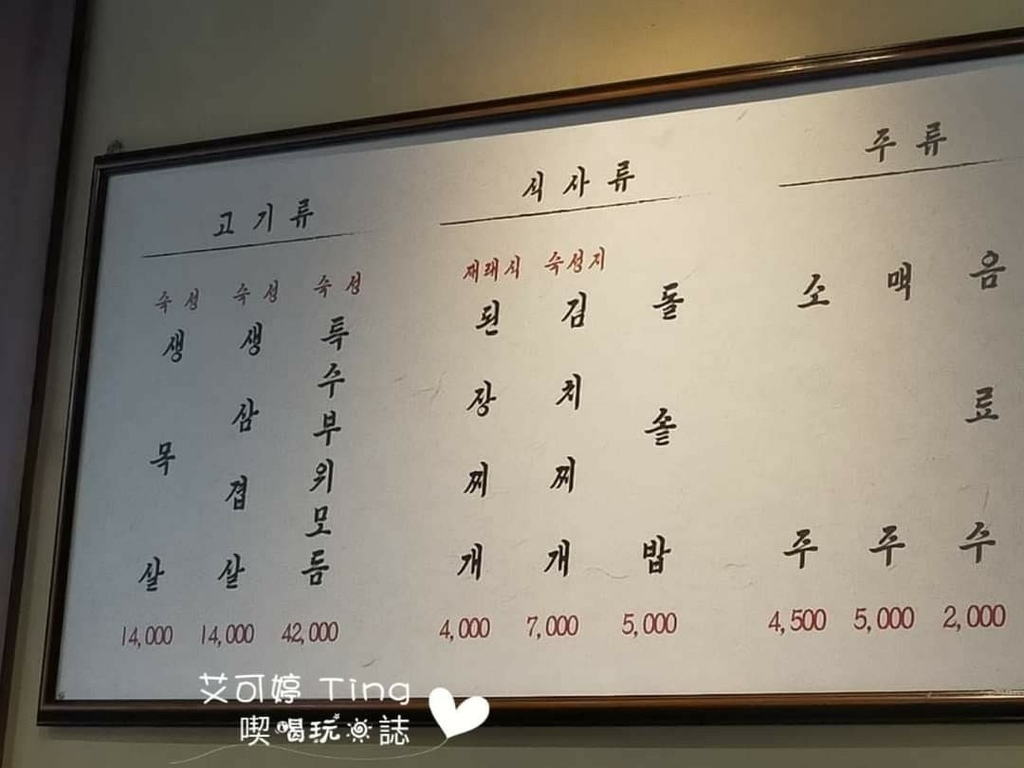 고기류
숙성
생목살
14,000
숙성
생삼겹살
14,000
숙성
특수부위모듬
42,000
식사류
재래식
된장찌개
4,000
숙성지
김치찌개
7,000
돌솥밥
5,000
주류
소주
4,500
맥주
5,000
음료수
2,000
艾可婷 Ting
喫喝玩日誌